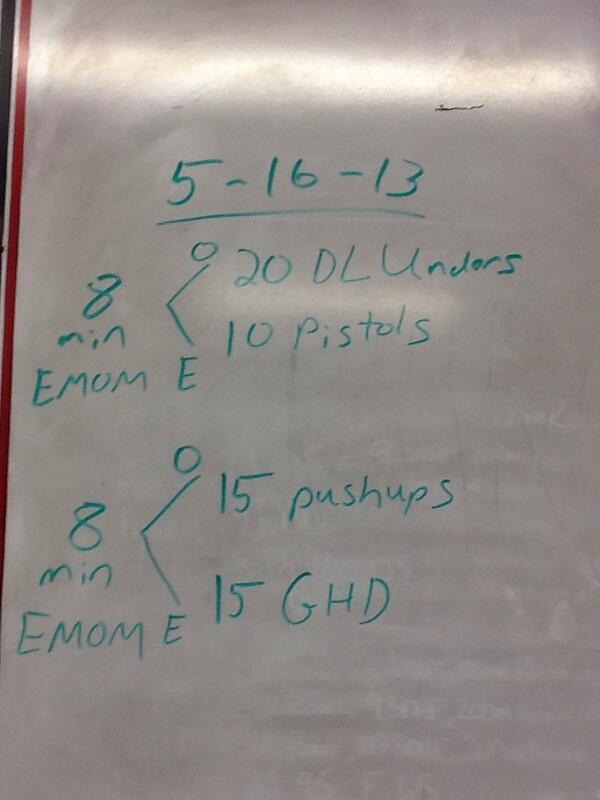 5-16-13
O 20 DL Unders
8
min
10 Pistols
EMOM E
O
15 pushups
8
min
15 GHD
EMOM E